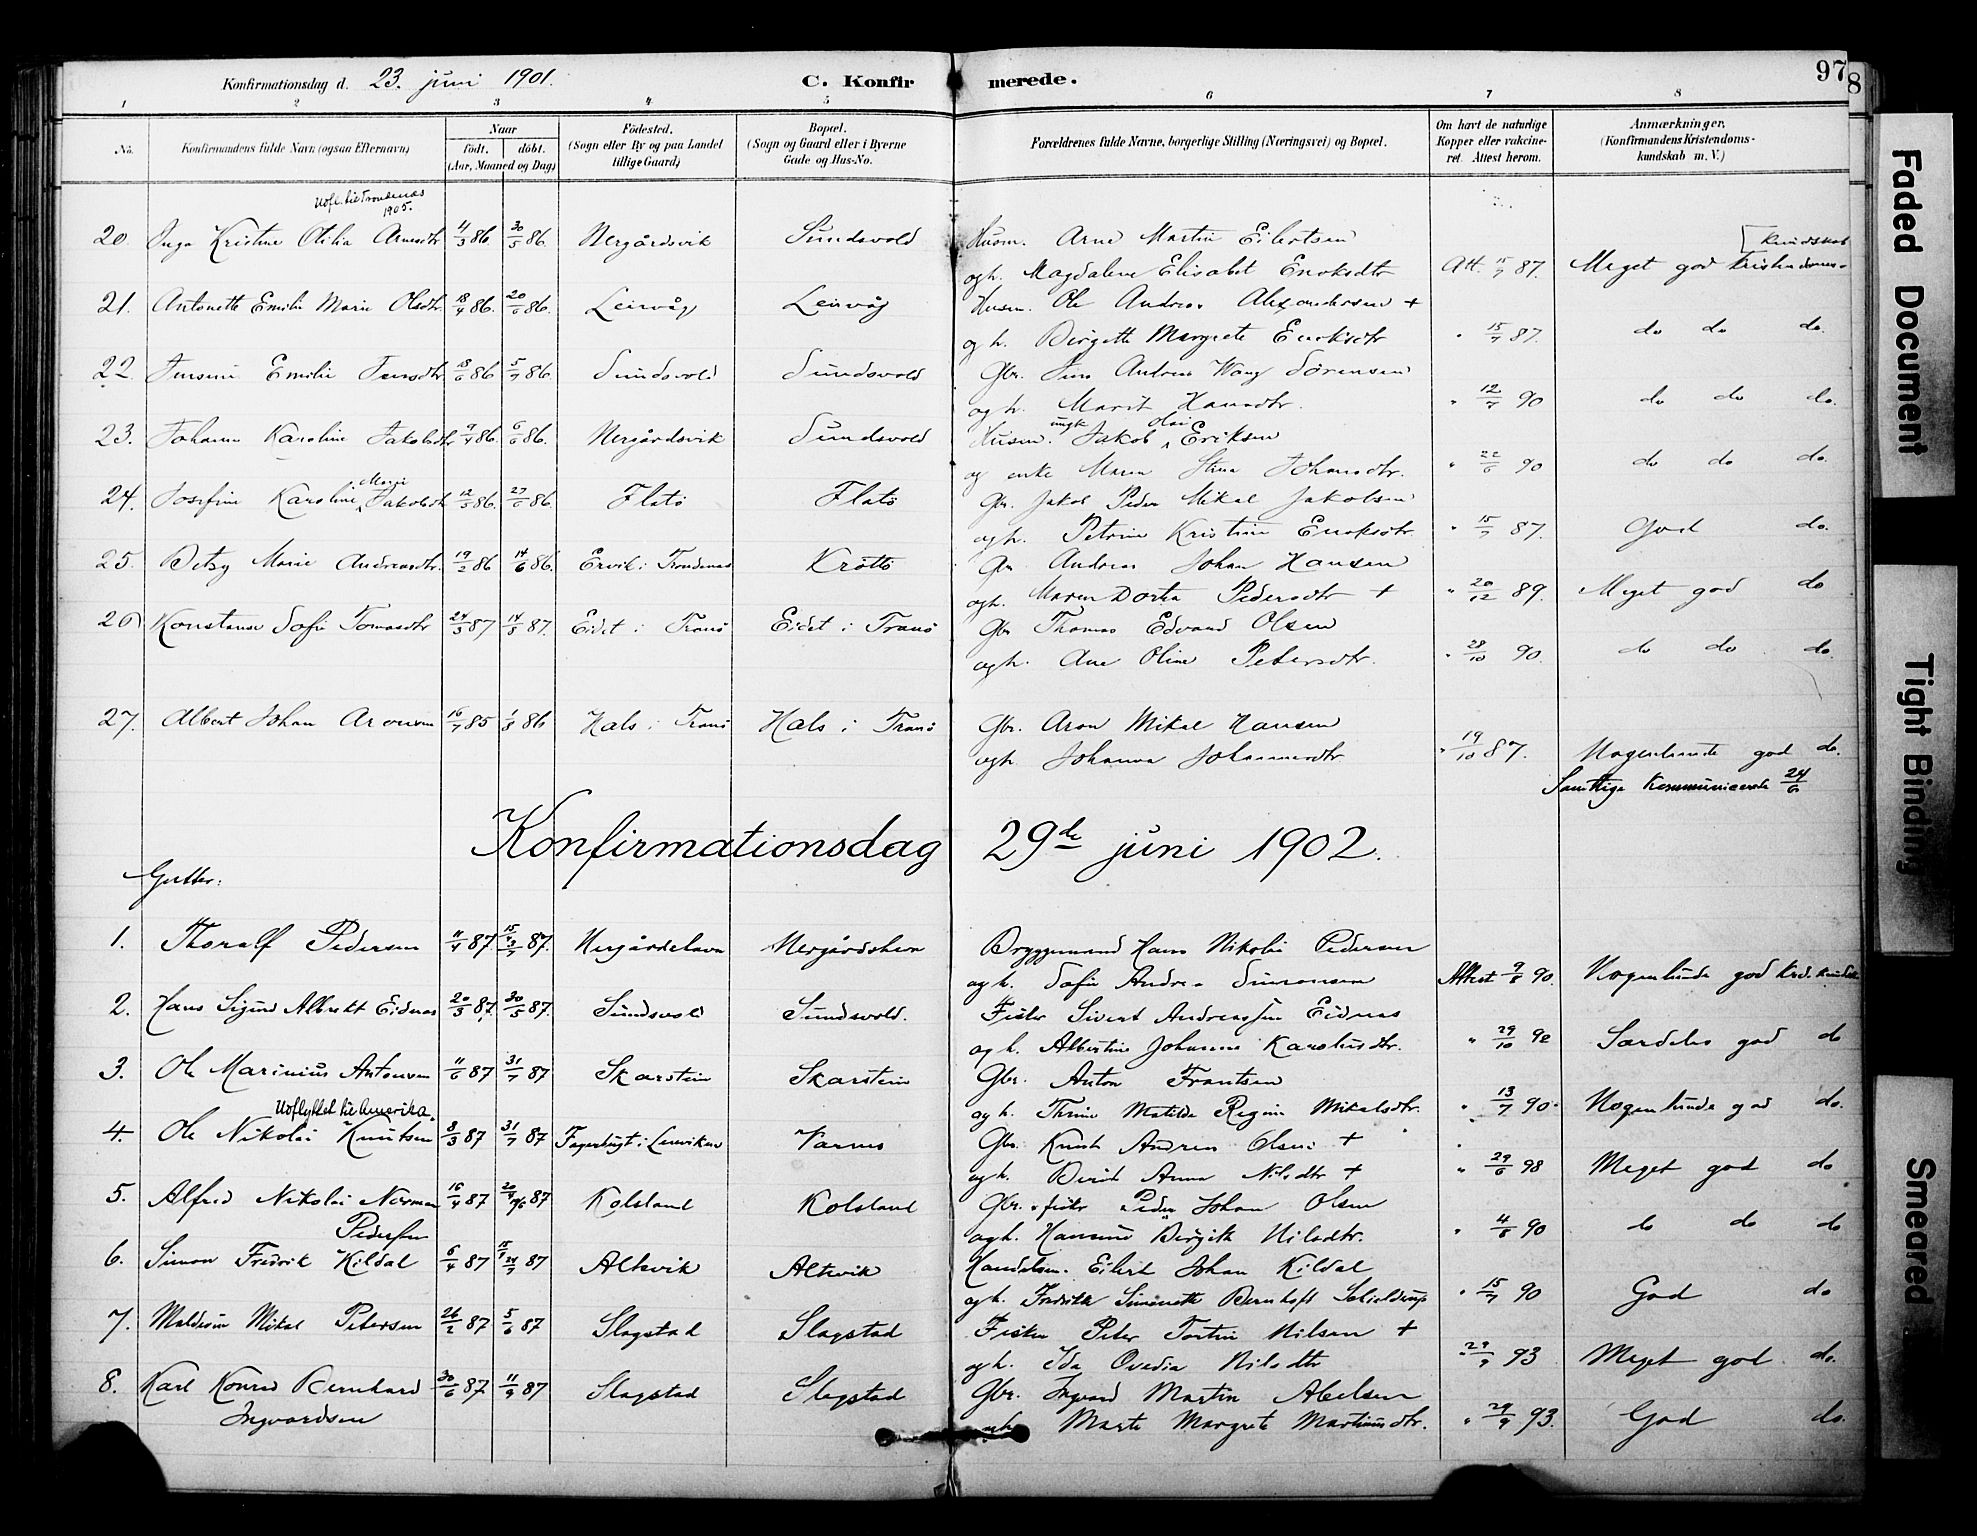 Konfirmationsdag d. 23. juni 1901.
C. Konfirmerede.
97
8
1 2 3 4 5 6 7 8
No.
Konfirmandens fulde Navn (ogsaa Efternavn)
Naar
født. døbt.
(Aar, Maaned og Dag)
Fødested.
(Sogn eller By og paa Landet
tillige Gaard)
Bopæl.
(Sogn og Gaard eller i Byerne
Gade og Hus-No.
Forældrenes fulde Navne, borgerlige Stilling (Næringsvei) og Bopæl.
Om havt de naturlige
Kopper eller vakcine-
ret. Attest herom.
Anmærkninger,
(Konfirmandens Kristendoms-
kundskab m. V.)
Udfl. til Trondenæs
1905.
20. Inga Kristine Otilia Arnesdtr 4/3 86. 30/5 86. Nergårdsvik Sundsvold Husm. Arne Martin Eilertsen
ogh. Magdalene Elisabet Enoksdtr Att. 15/7 87. Meget god Kristendoms-
kundskab
21. Antonette Emilie Marie Olsdtr. 18/4 86. 20/6 86. Leirvåg Leirvåg Husm. Ole Andreas Alexandersen +
og h. Birgitte Margrete Enoksdtr " 15/7 87. do do do.
22. Jensine Emilie Jensdtr 18/6 86 5/7 86. Sundsvold Sundsvold Gbr. Jens Andreas Wang Sørensen
og h. Marit Hansdtr. " 12/7 90 do do do.
23. Johanne Karoline Jakobsdtr 9/4 86. 6/6 86. Nergårdsvik Sundsvold Husm. ungk. Jakob Olai Eriksen
og enke Maren Stina Johansdtr. " 22/6 90 do do do.
24. Josefine Karoline Marie Jakobsdtr 12/5 86. 27/6 86. Flatø Flatø Gbr. Jakob Peder Mikal Jakobsen
ogh. Petrine Kristine Enoksdtr. " 15/7 87. God do.
25. Betzy Marie Andreasdtr. 19/2 86 14/6 86. Ervik i Trondenæs Krøttø Gbr Andreas Johan Hansen
ogh. Maren Dorte Pedersdtr + " 20/12 89. Meget god do
26 Konstanse Sofie Tomasdtr 24/3 87 14/5 87. Eidet i Tranø Eidet i Tranø Gbr Thomas Edvard Olsen
ogh. Ane Oline Petersdtr. " 28/10 90. do do do.
27. Albert Johan Aronsen 16/7 85 1/8 86 Hals i Tranø Hals i Tranø Gbr. Aron Mikal Hansen
ogh Johanna Johannesdtr " 19/10 87. Nogenlunde god do.
Samtlige Kommunicerede 24/6
Konfirmationsdag 29de juni 1902.
Gutter:
1. Thoralf Pedersen 11/4 87. 15/4 3/7 87. Nergårdshavn Nergårdshavn Bryggemand Hans Nikolai Pedersen
ogh. Sofie Andrea Simonsen Attest 9/8 90. Nogenlunde god krd. kundsk.
2. Hans Sigurd Albrekt Eidnes 20/3 87. 30/5 87. Sundsvold Sundsvold. Fisker Sivert Andreassen Eidnæs
og h. Albertine Johanna Karolusdtr. " 29/10 92 Særdeles god do
3. Ole Marinius Antonsen 11/6 87 31/7 87 Skarstein Skarstein Gbr. Anton Frantsen
og h. Thrine Matilde Regine Mikalsdtr. " 13/7 90. Nogenlunde god do.
Udflyttet til Amerika.
4. Ole Nikolai Knutsen 8/3 87 31/7 87 Fagerbugt i Lenviken Varnes Gbr. Knut Andreas Olsen +
og h. Berit Anna Nilsdtr + " 29/6 98 Meget god do
5. Alfred Nikolai Norman 16/4 87 Kolsland Kolsland Gbr. & fisker Peder Johan Olsen
Pedersen ogh. Hansine Birgitte Nilsdtr. " 4/8 90 do do do
6. Simon Fredrik Kildal 6/4 87 Altevik Altevik Handelsm. Eilert Johan Kildal
ogh. Fredrikke Simonette Bernhoft Schjelderup " 15/7 90 God do
7. Meldium Mikal Petersen 26/2 87 5/6 87 Slagstad Slagstad Fisker Peter Tostin Nilsen +
ogh. Ida Ovedia Nilsdtr " 29/9 93 Meget god do.
8. Karl Konrad Bernhard 30/6 87 11/9 87 Slagstad Slagstad Gbr. Ingvard Martin Abelsen
Ingvardsen ogh. Marte Margrete Martinusdtr. " 29/9 93. God do.
Faded Document
Tight Binding
Smeared